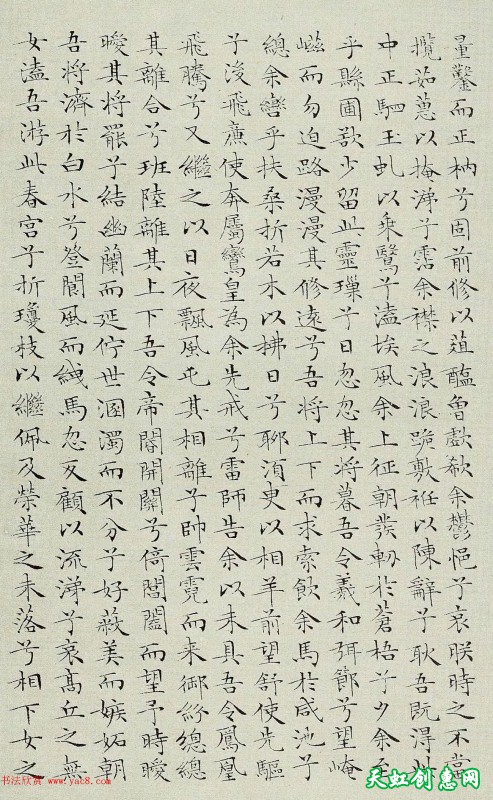 量鑿而正枘兮固前修以葅醢曾歔欷余鬱悒兮哀朕時之不當
攬茹蕙以掩涕兮霑余襟之浪浪跪敷衽以陳辭兮耿吾既得此
中正駟玉虬以乘鷖兮溘埃風余上征朝發軔於蒼梧兮夕余至
乎縣圃欲少留此靈璅兮日忽忽其將暮吾令羲和弭節兮望崦
嵫而勿迫路漫漫其修遠兮吾將上下而求索飲余馬於咸池兮
總余轡乎扶桑折若木以拂日兮聊須臾以相羊前望舒使先驅
兮後飛廉使奔屬鸞皇為余先戒兮雷師告余以未具吾令鳳凰
飛騰兮又繼之以日夜飄風屯其相離兮帥雲霓而来御紛總總
其離合兮班陸離其上下吾令帝閽開關兮倚閶闔而望予時曖
曖其將罷兮結幽蘭而延佇世溷濁而不分兮好蔽美而嫉妬朝
吾將濟於白水兮登閬風而緤馬忽反顧以流涕兮哀高丘之無
女溘吾游此春宮兮折瓊枝以繼佩及榮華之未落兮相下女之
书法欣赏 www.yac8.com
天虹创意网